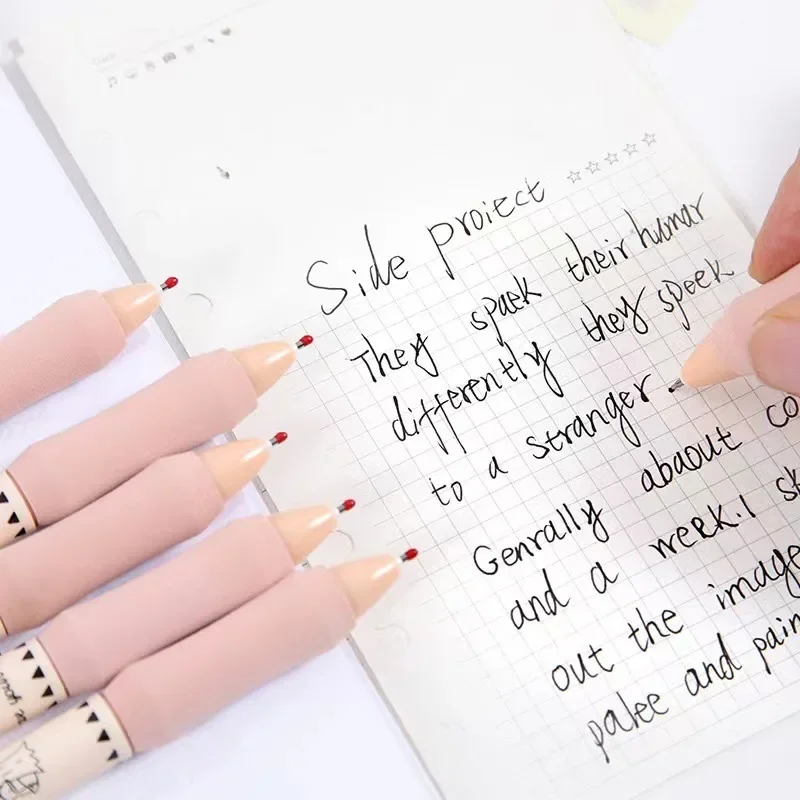 Side proiect
They spaek their humar
differently they speek
to a stranger
Genrally abaout co
and a werk.I sk
out the image
palee and pain